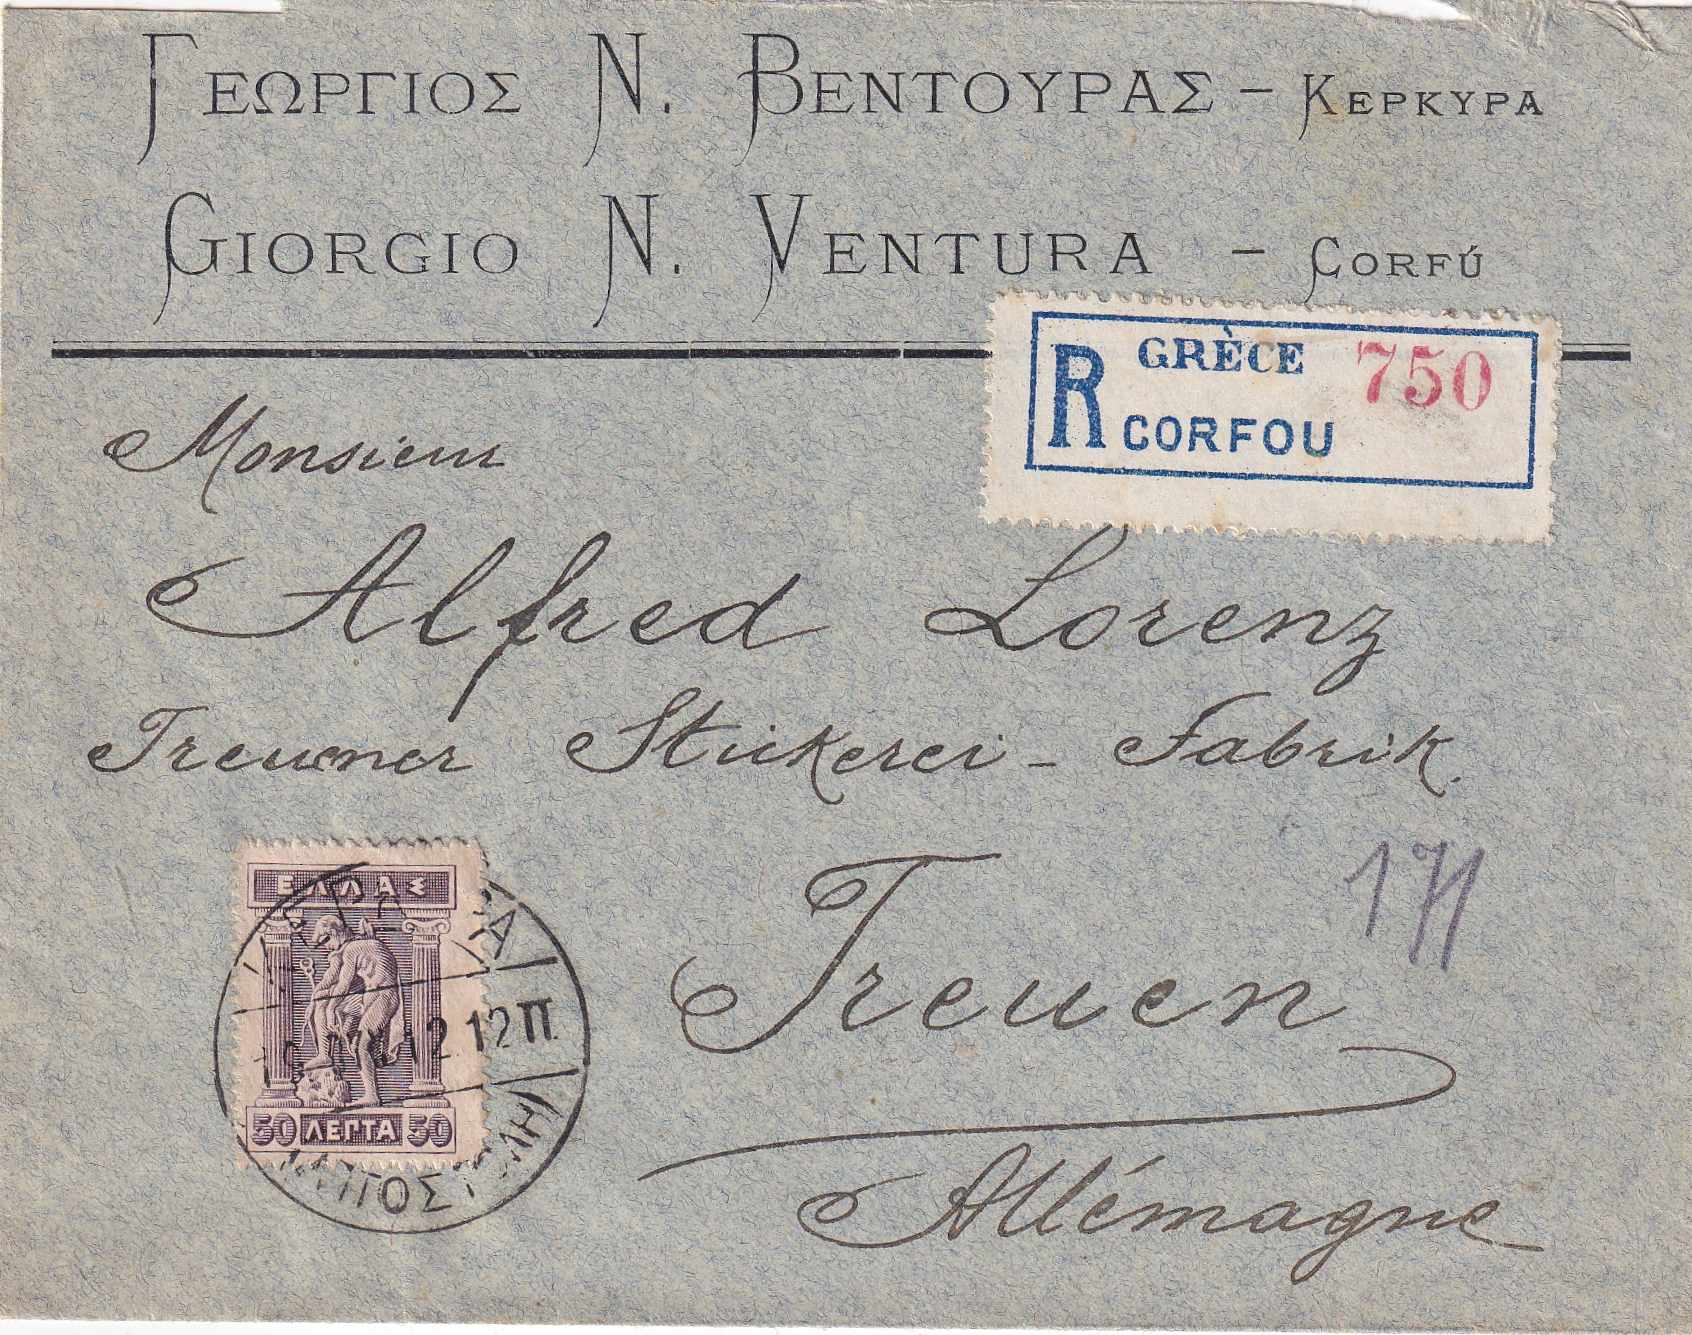 ΓΕΩΡΓΙΟΣ Ν. ΒΕΝΤΟΥΡΑΣ – ΚΕΡΚΥΡΑ
GIORGIO N. VENTURA – CORFÚ
R GRÈCE 750
CORFOU
Monsieur
Alfred Lorenz
Treuener Stickerei - Fabrik.
171
Treuen
Allémagne
ΕΛΛΑΣ
12 12 Π
50 ΛΕΠΤΑ 50